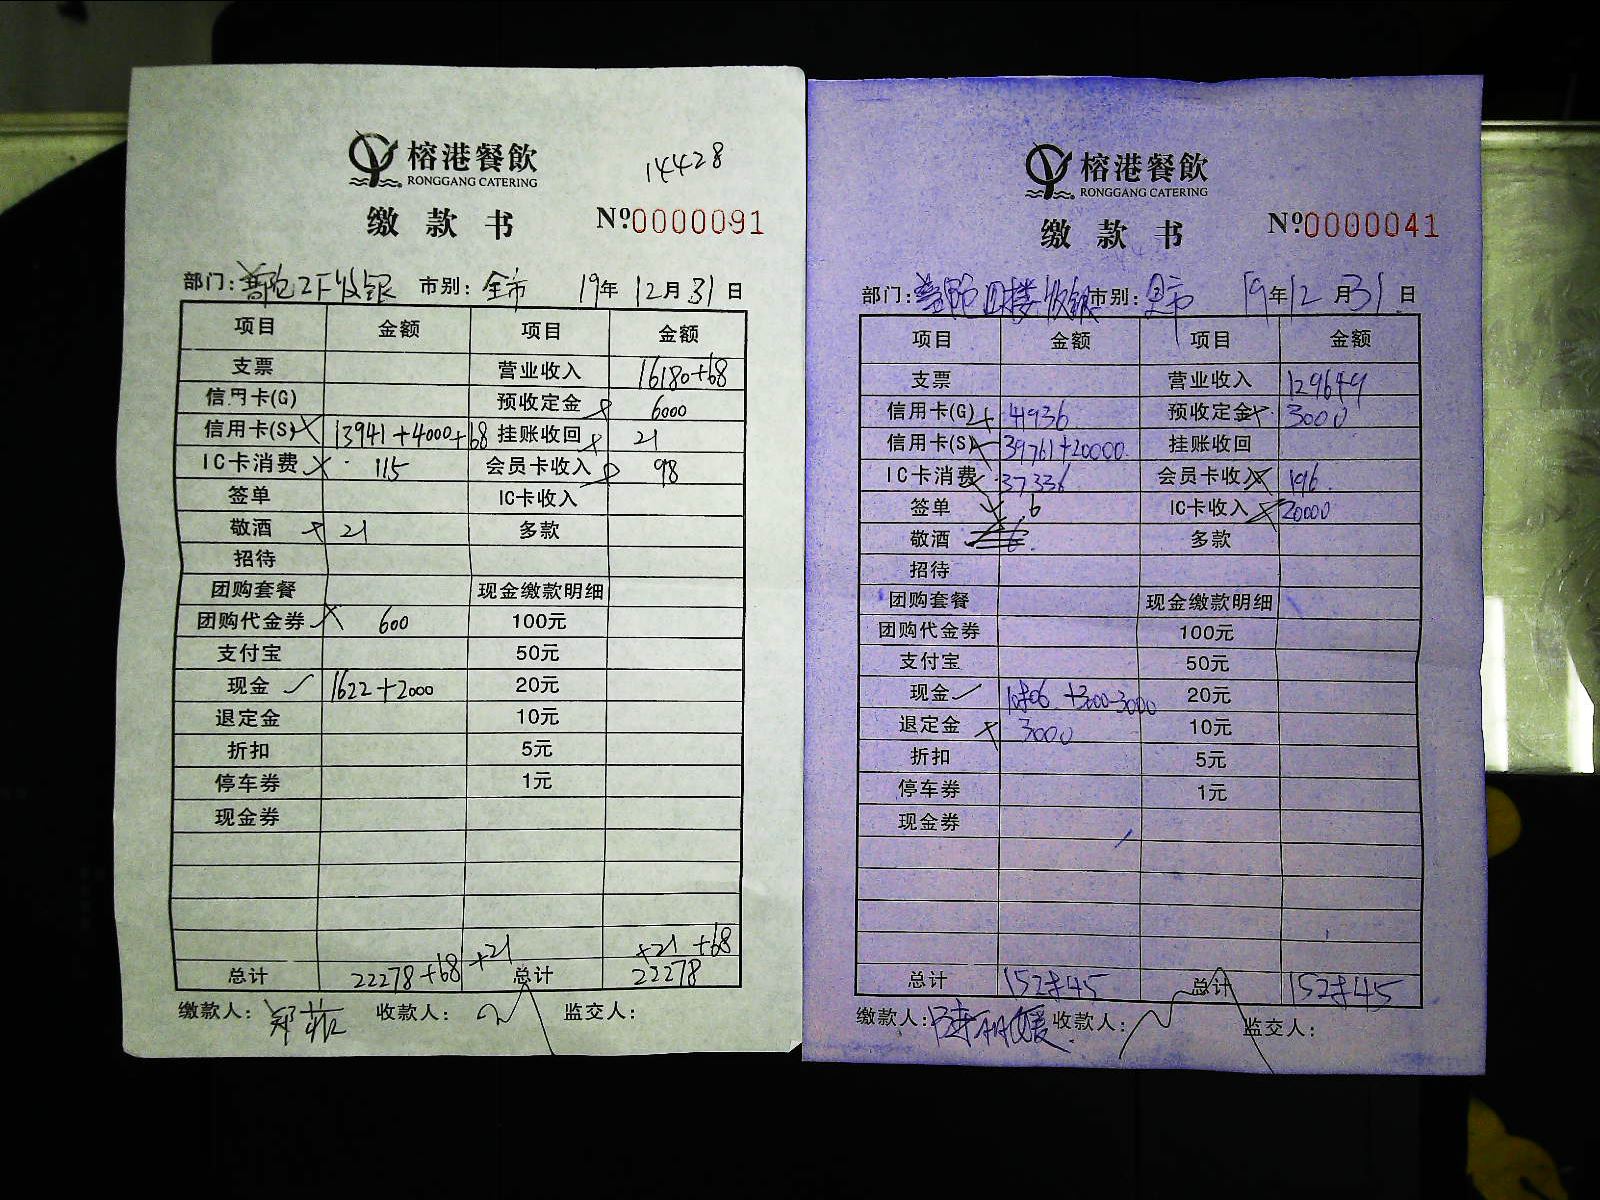 榕港餐飲
RONGGANG CATERING
14428
缴款书 Nº0000091
部门:普陀2F收银 市别:全市 19年12月31日
项目 金额 项目 金额
支票 营业收入 16180+68
信用卡(G) 预收定金 6000
信用卡(S) 13941+4000+68 挂账收回 21
IC卡消费 115 会员卡收入 98
签单 IC卡收入
敬酒 21 多款
招待
团购套餐 现金缴款明细
团购代金券 600 100元
支付宝 50元
现金 1622+2000 20元
退定金 10元
折扣 5元
停车券 1元
现金券
总计 22278+68+21 总计 22278+21+68
缴款人:郑菲 收款人: 监交人:
榕港餐飲
RONGGANG CATERING
缴款书 Nº0000041
部门:普陀四楼收银 市别:全市 19年12月31日
项目 金额 项目 金额
支票 营业收入 129649
信用卡(G) 41936 预收定金 3000
信用卡(S) 39761+20000 挂账收回
IC卡消费 37336 会员卡收入 196
签单 6 IC卡收入 20000
敬酒 多款
招待
团购套餐 现金缴款明细
团购代金券 100元
支付宝 50元
现金 +3000-3000 20元
退定金 3000 10元
折扣 5元
停车券 1元
现金券
总计 152845 总计 152845
缴款人: 收款人: 监交人: